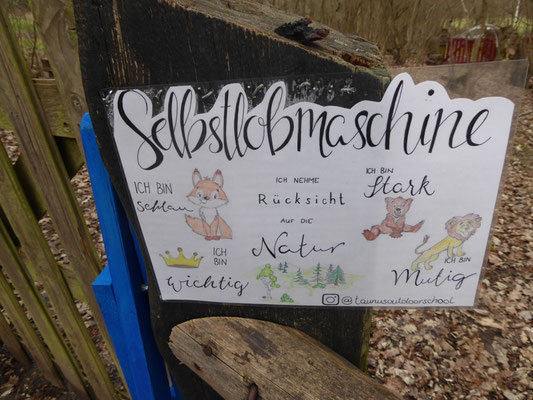 Selbstlobmaschine
ICH BIN
Schlau
ICH NEHME
Rücksicht
AUF DIE
Natur
ICH BIN
Stark
ICH
BIN
Wichtig
ICH BIN
Mutig
@taunusoutdoorschool